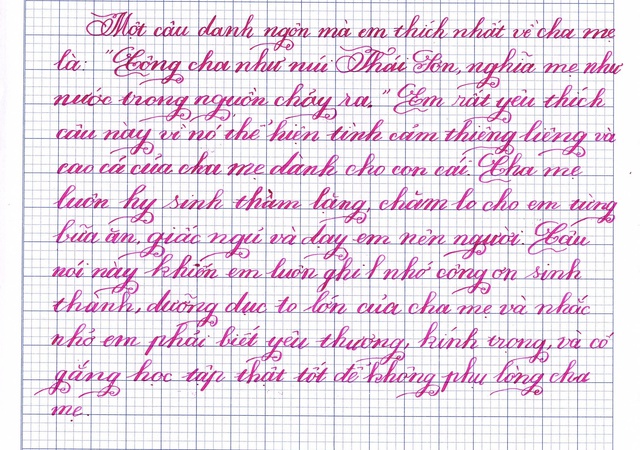 Một câu danh ngôn mà em thích nhất về cha mẹ
là: "Công cha như núi Thái Sơn, nghĩa mẹ như
nước trong nguồn chảy ra." Em rất yêu thích
câu này vì nó thể hiện tình cảm thiêng liêng và
cao cả của cha mẹ dành cho con cái. Cha mẹ
luôn hy sinh thầm lặng, chăm lo cho em từng
bữa ăn, giấc ngủ và dạy em nên người. Câu
nói này khiến em luôn ghi nhớ công ơn sinh
thành, dưỡng dục to lớn của cha mẹ và nhắc
nhở em phải biết yêu thương, kính trọng, và cố
gắng học tập thật tốt để không phụ lòng cha
mẹ.